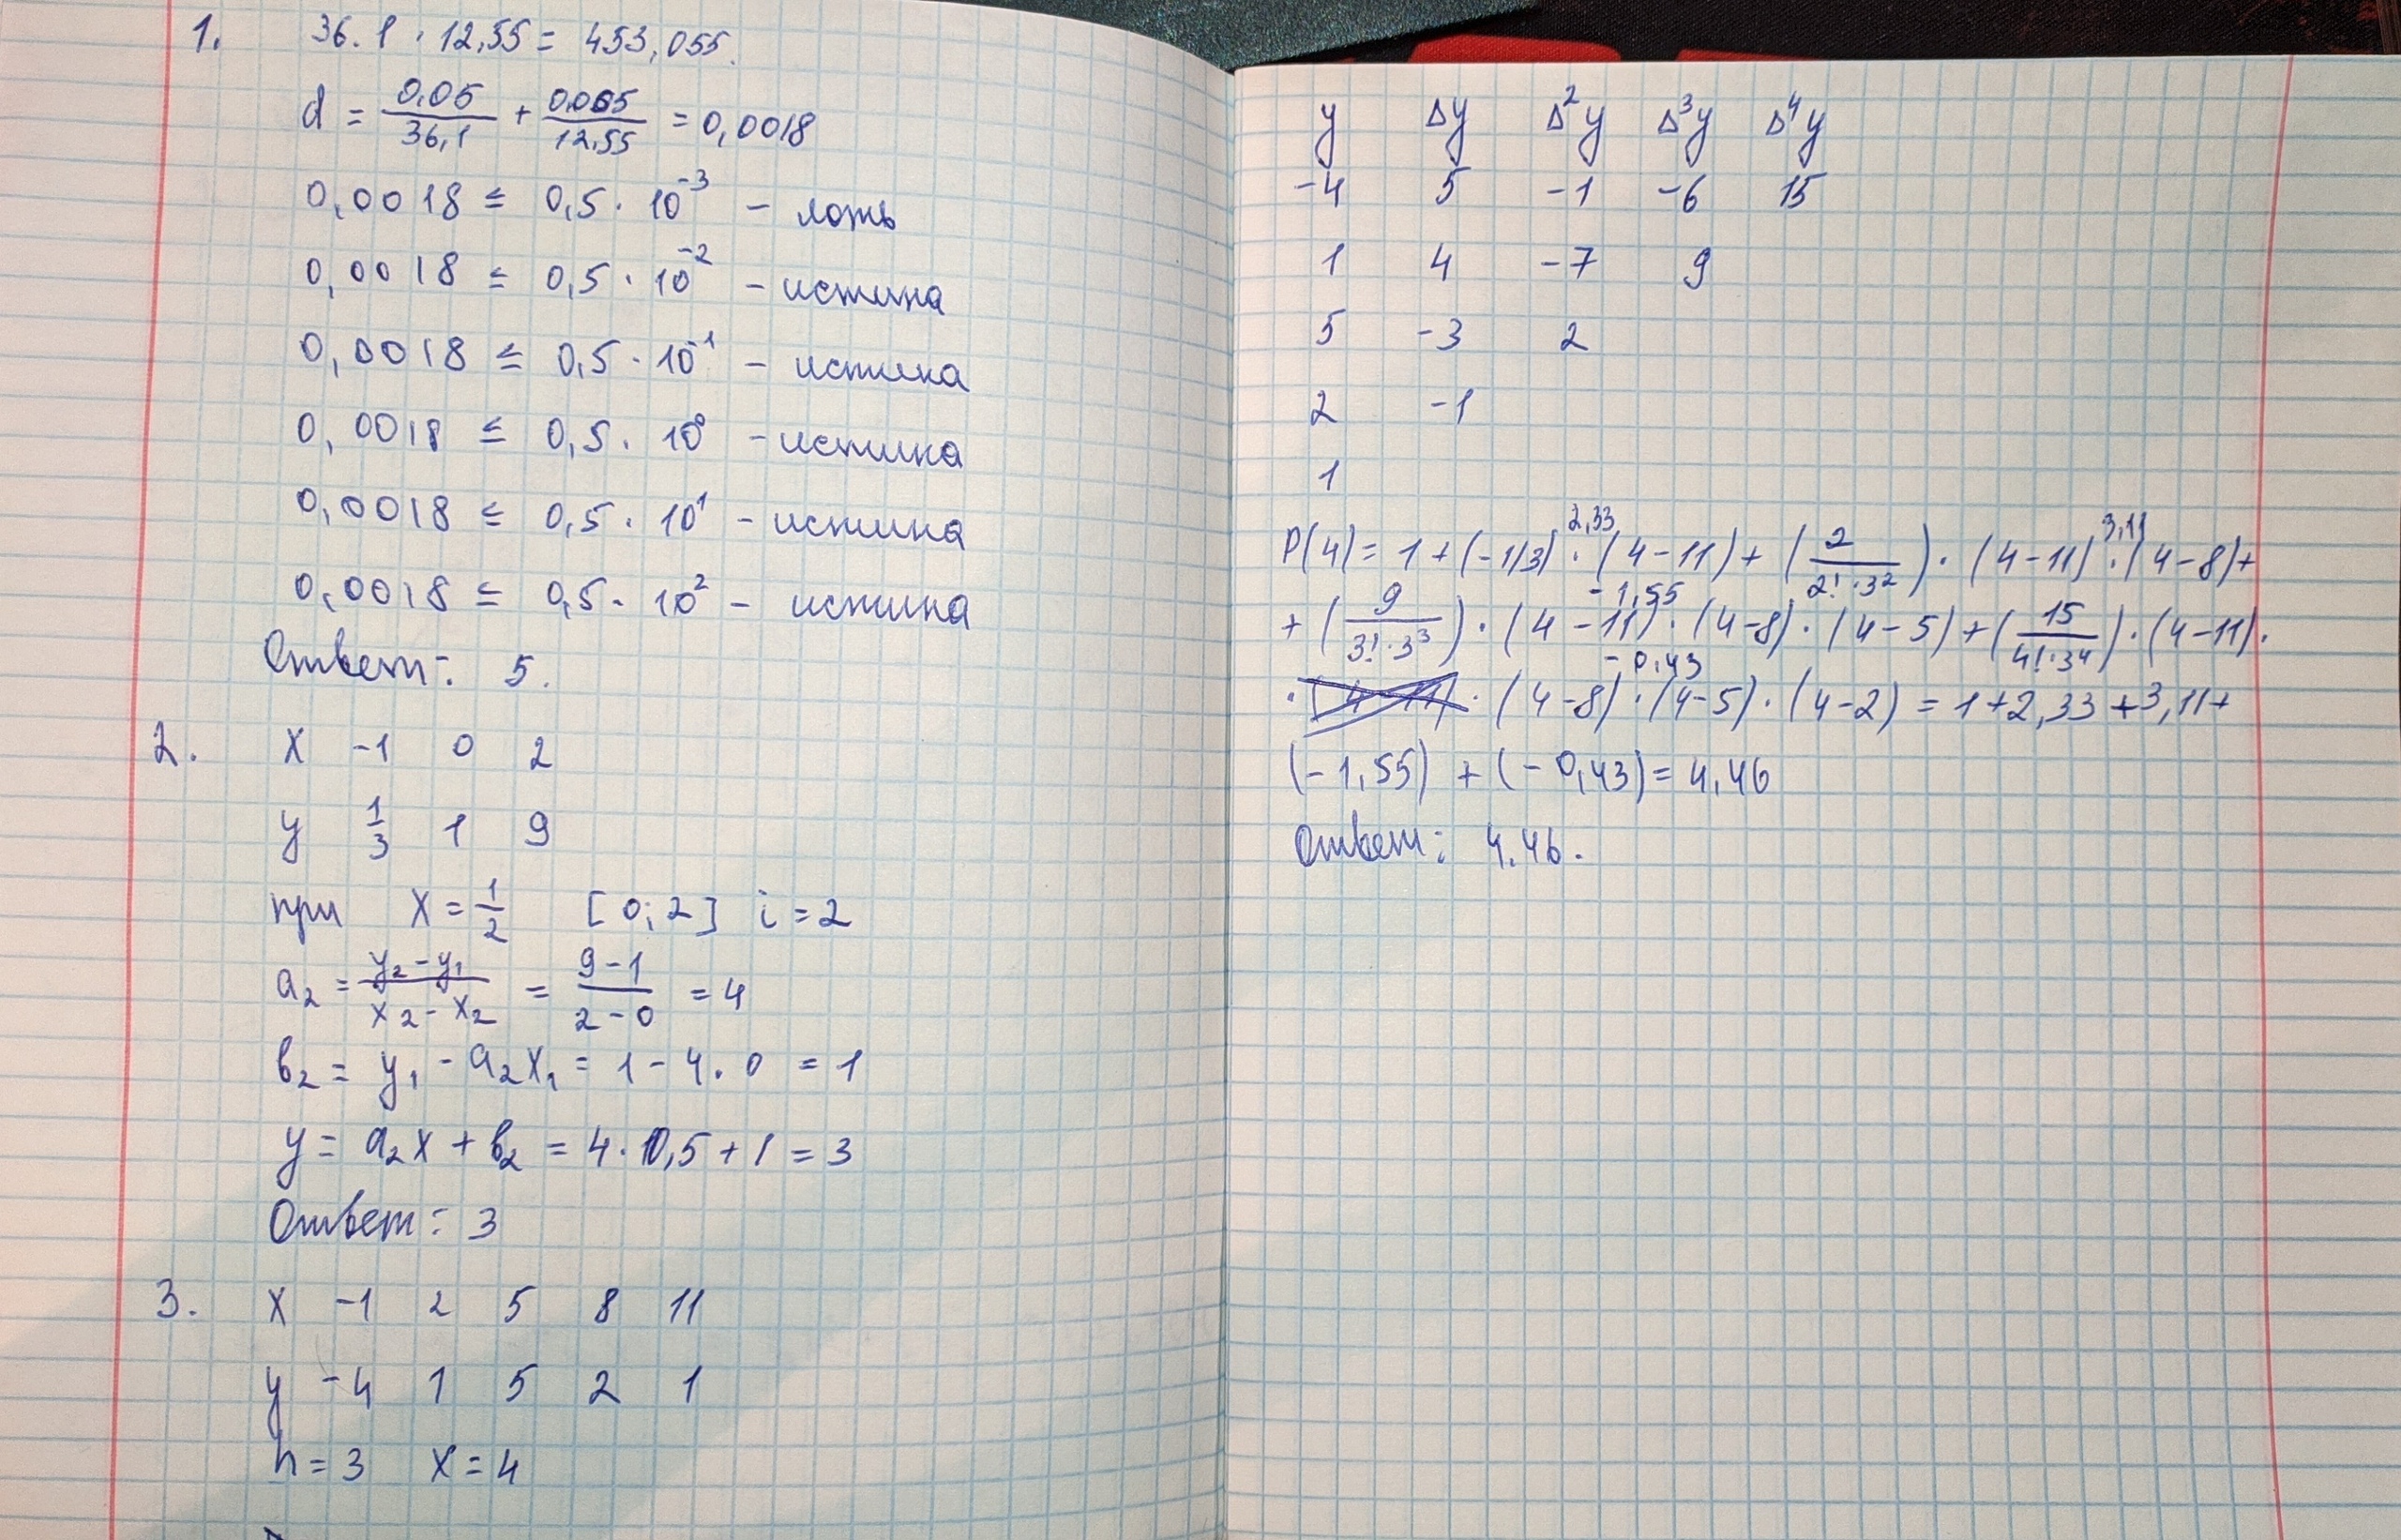 1. 36.1 · 12,55 = 453,055.
d = 0,05/36,1 + 0,005/12,55 = 0,0018
0,0018 ≤ 0,5 · 10^-3 – ложь
0,0018 ≤ 0,5 · 10^-2 – истина
0,0018 ≤ 0,5 · 10^-1 – истина
0,0018 ≤ 0,5 · 10^0 – истина
0,0018 ≤ 0,5 · 10^1 – истина
0,0018 ≤ 0,5 · 10^2 – истина
Ответ: 5.
2. x -1 0 2
y 1/3 1 9
при x = 1/2 [0; 2] i = 2
a₂ = (y₂ - y₁)/(x₂ - x₂) = (9 - 1)/(2 - 0) = 4
b₂ = y₁ - a₂x₁ = 1 - 4 · 0 = 1
y = a₂x + b₂ = 4 · 0,5 + 1 = 3
Ответ: 3
3. x -1 2 5 8 11
y -4 1 5 2 1
h = 3 x = 4
y Δy Δ²y Δ³y Δ⁴y
-4 5 -1 -6 15
1 4 -7 9
5 -3 2
2 -1
1
2,33 3,11
P(4) = 1 + (-1/3) · (4 - 11) + (2/(2! · 3²)) · (4 - 11) · (4 - 8) +
-1,55
+ (9/(3! · 3³)) · (4 - 11) · (4 - 8) · (4 - 5) + (15/(4! · 3⁴)) · (4 - 11) ·
-0,43
· (4 - 11) · (4 - 8) · (4 - 5) · (4 - 2) = 1 + 2,33 + 3,11 +
(-1,55) + (-0,43) = 4,46
Ответ: 4.46.